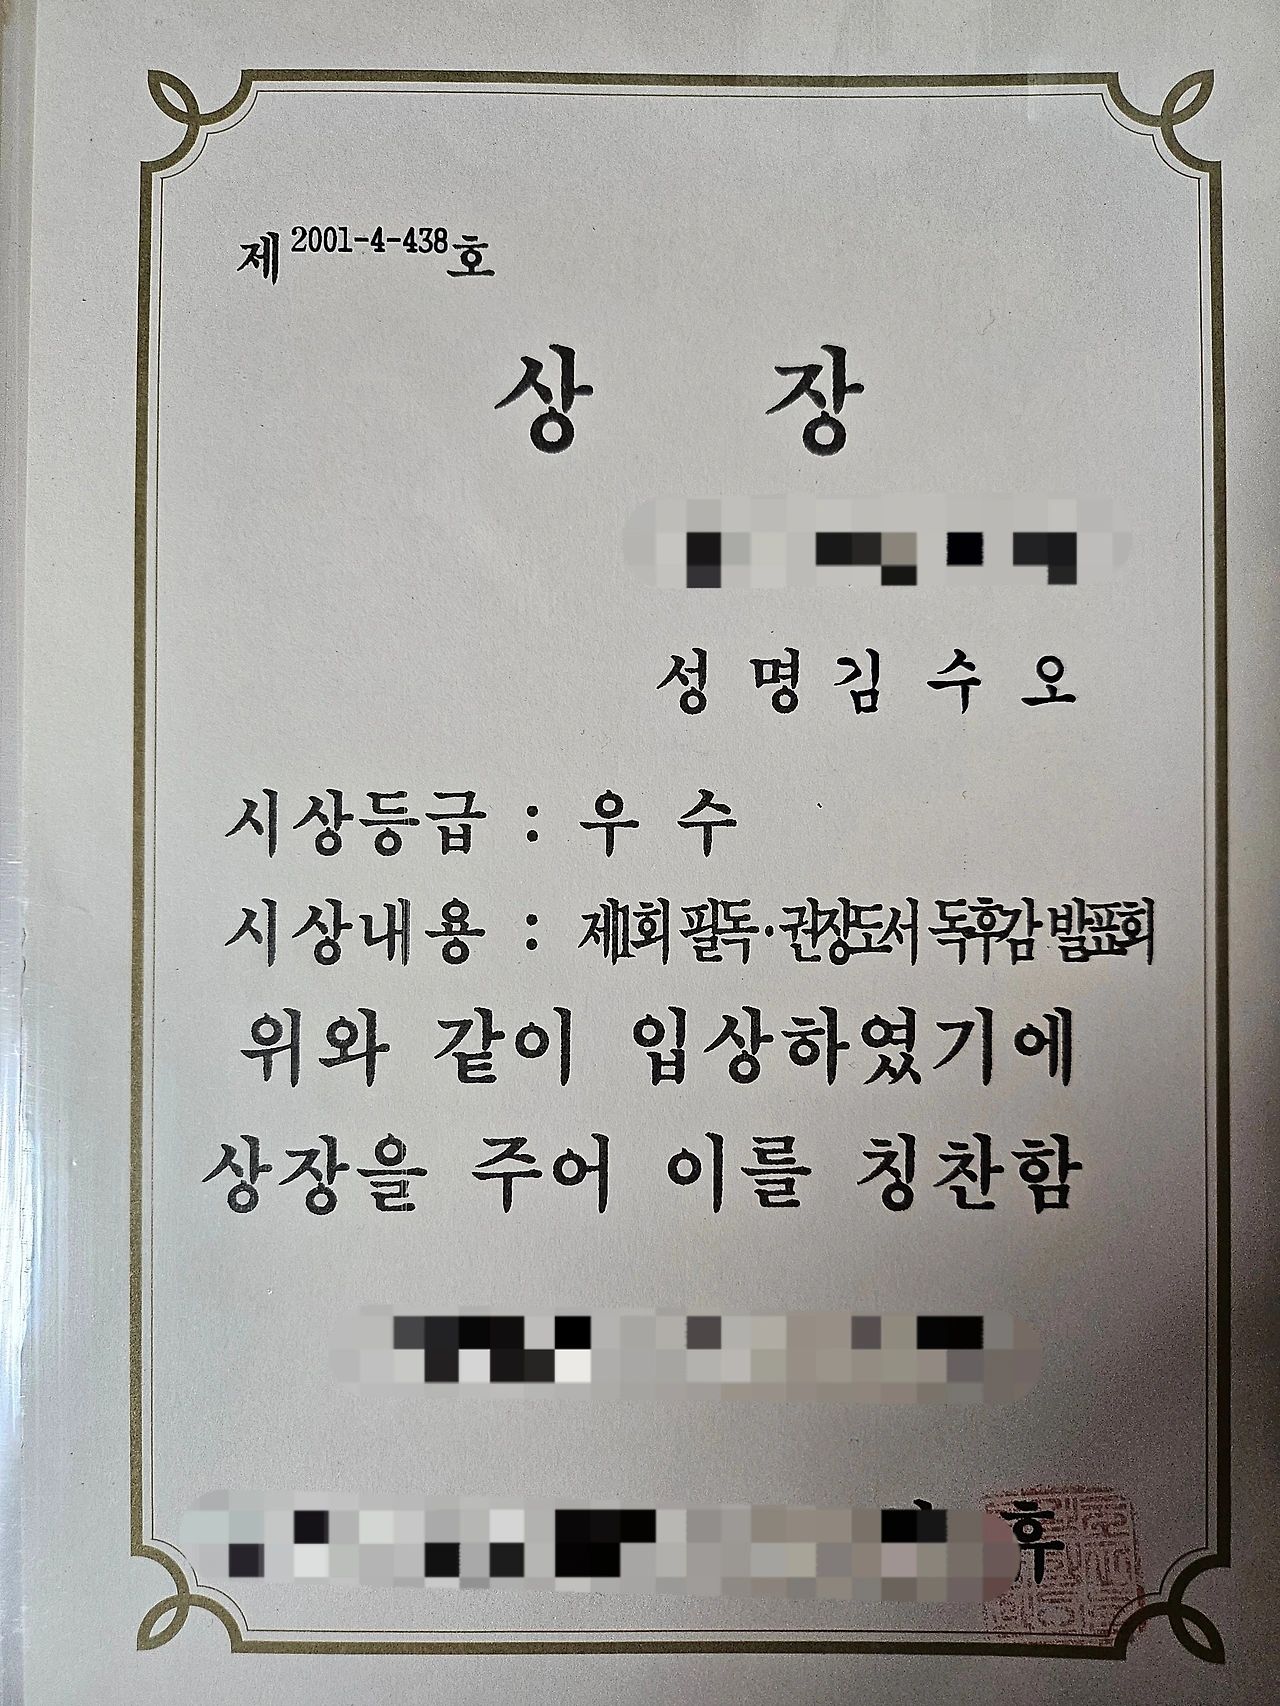 제 2001-4-438 호
상 장
성 명 김 수 오
시상등급 : 우 수
시상내용 : 제1회 필독·권장도서 독후감 발표회
위와 같이 입상하였기에
상장을 주어 이를 칭찬함
후